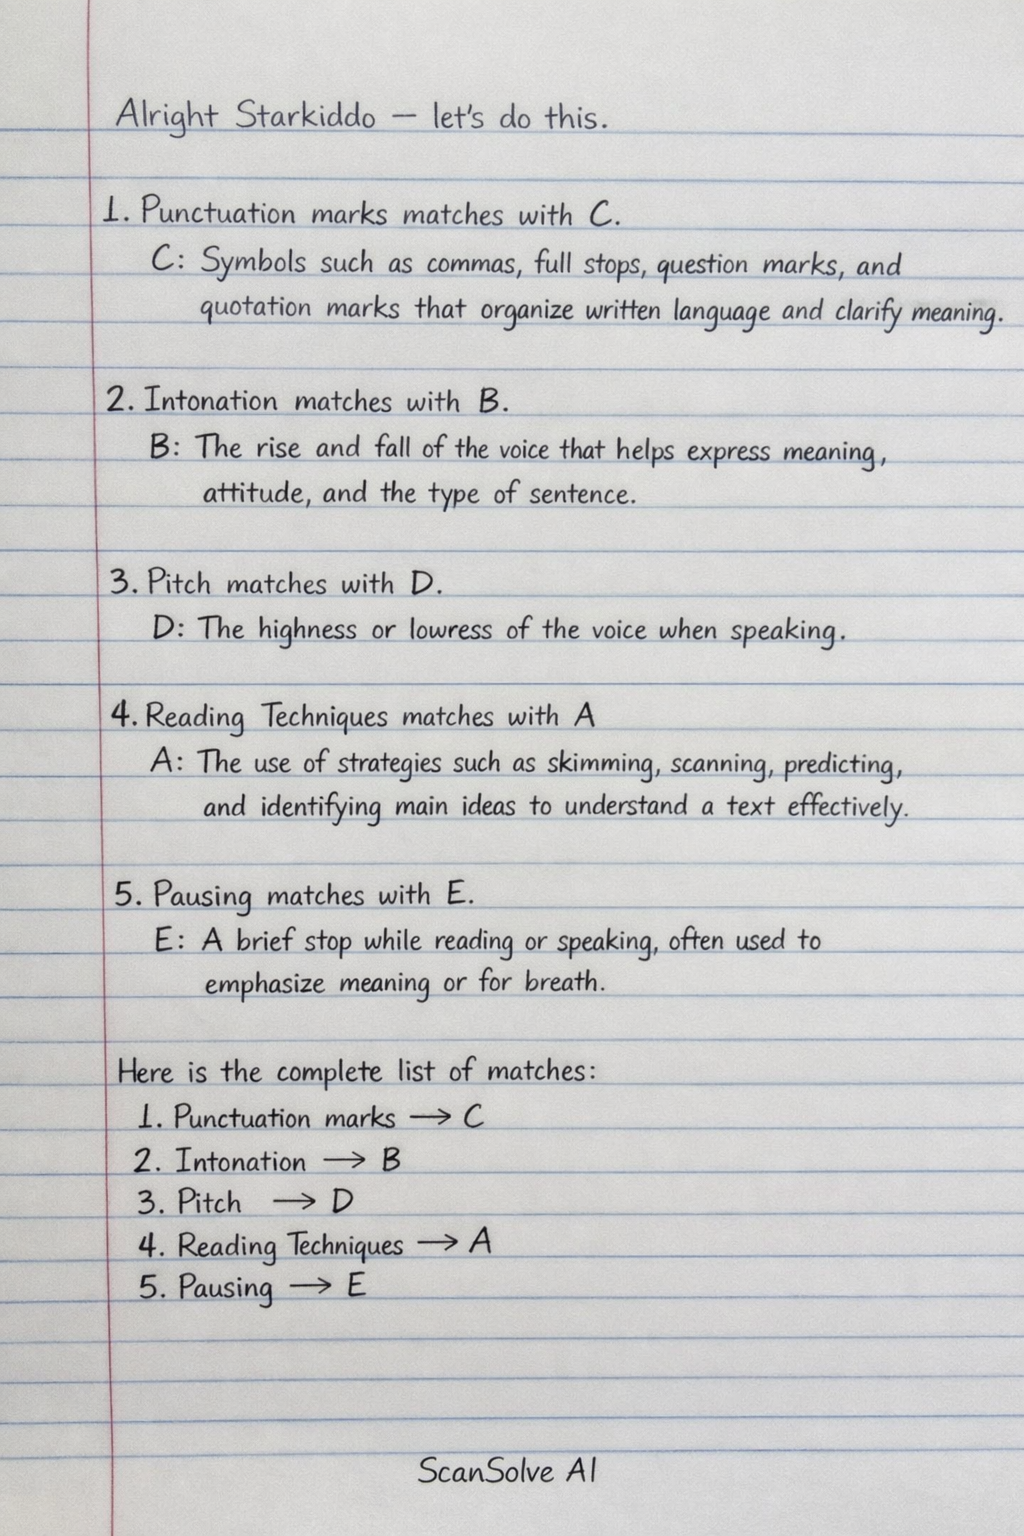 Alright Starkiddo — let's do this.
1. Punctuation marks matches with C.
C: Symbols such as commas, full stops, question marks, and
quotation marks that organize written language and clarify meaning.
2. Intonation matches with B.
B: The rise and fall of the voice that helps express meaning,
attitude, and the type of sentence.
3. Pitch matches with D.
D: The highness or lowress of the voice when speaking.
4. Reading Techniques matches with A
A: The use of strategies such as skimming, scanning, predicting,
and identifying main ideas to understand a text effectively.
5. Pausing matches with E.
E: A brief stop while reading or speaking, often used to
emphasize meaning or for breath.
Here is the complete list of matches:
1. Punctuation marks → C
2. Intonation → B
3. Pitch → D
4. Reading Techniques → A
5. Pausing → E
ScanSolve AI